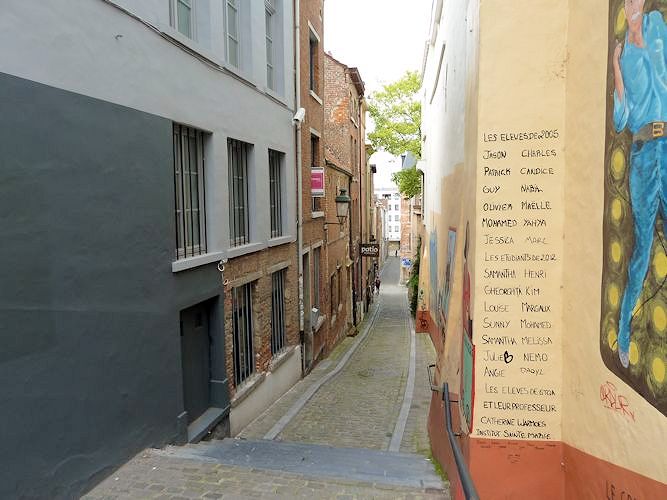 LES ELEVES DE 2005
JASON CHARLES
PATRICK CANDICE
GUY NABIL
OLIVIER MAELLE
MOHAMED YAHYA
JESSICA MARC
LES ETUDIANTS DE 2012
SAMANTHA HENRI
GHEORGHITA KIM
LOUISE MARGAUX
SUNNY MOHAMED
SAMANTHA MELISSA
JULIE NEMO
ANGIE DARYL
LES ELEVES DE 6TQA
ET LEUR PROFESSEUR
CATHERINE WARMOES
INSTITUT SAINTE MARIE
patio